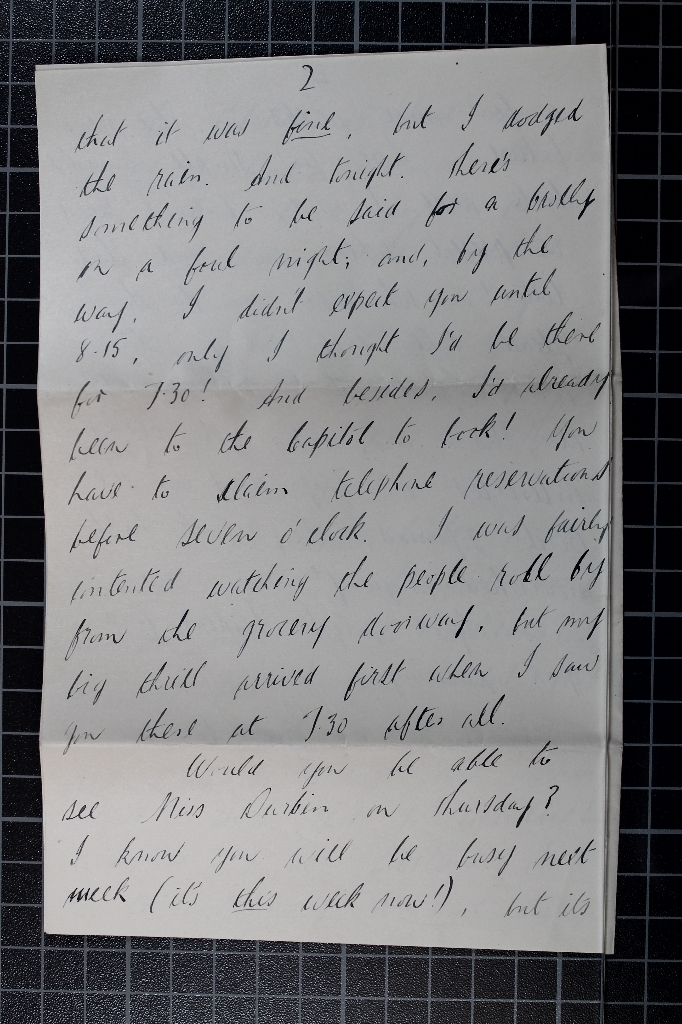 2
that it was fine, but I dodged
the rain. And tonight. There's
something to be said for a brolly
on a foul night; and, by the
way, I didn't expect you until
8.15, only I thought I'd be there
for 7.30! And besides, I'd already
been to the Capitol to book! You
have to claim telephone reservations
before seven o'clock. I was fairly
contented watching the people roll by
from the grocery doorway, but my
big thrill arrived first when I saw
you there at 7.30 after all.
Would you be able to
see Miss Durbin on Thursday?
I know you will be busy next
week (it's this week now!), but its